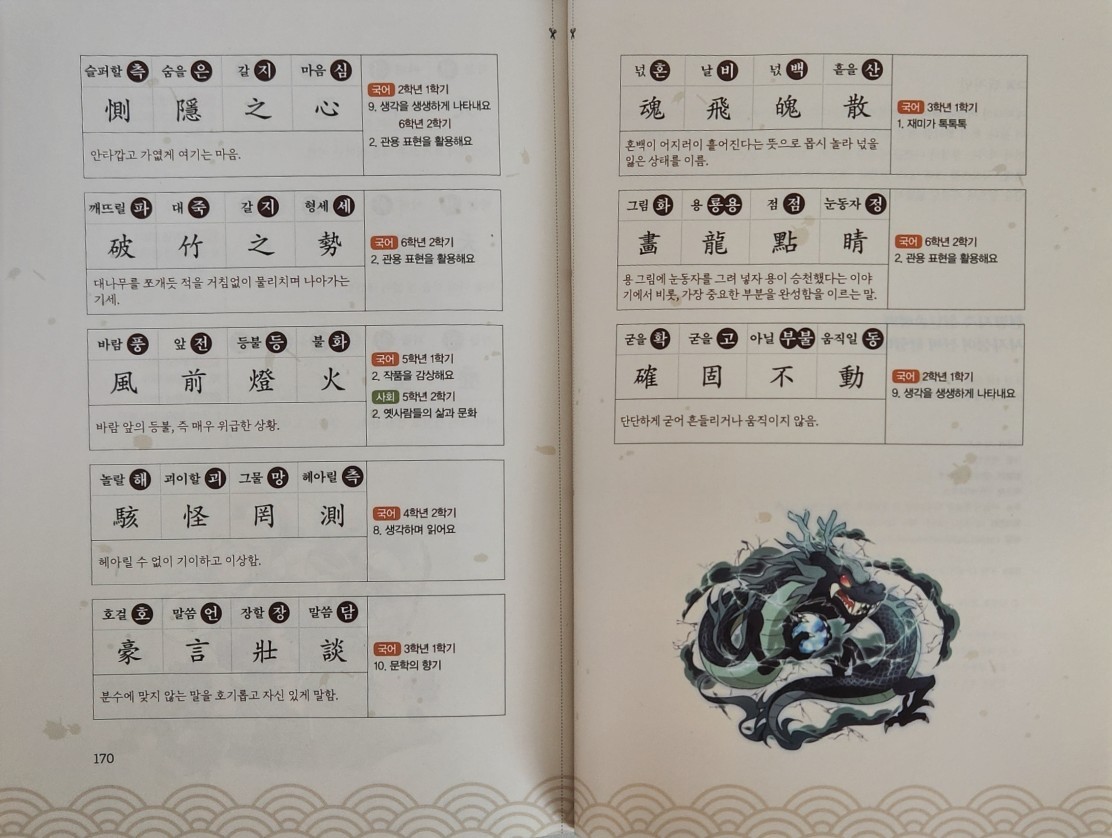 슬퍼할 측 숨을 은 갈 지 마음 심
惻 隱 之 心
안타깝고 가엾게 여기는 마음.
국어 2학년 1학기
9. 생각을 생생하게 나타내요
6학년 2학기
2. 관용 표현을 활용해요
깨뜨릴 파 대 죽 갈 지 형세 세
破 竹 之 勢
대나무를 쪼개듯 적을 거침없이 물리치며 나아가는
기세.
국어 6학년 2학기
2. 관용 표현을 활용해요
바람 풍 앞 전 등불 등 불 화
風 前 燈 火
바람 앞의 등불, 즉 매우 위급한 상황.
국어 5학년 1학기
2. 작품을 감상해요
사회 5학년 2학기
2. 옛사람들의 삶과 문화
놀랄 해 괴이할 괴 그물 망 헤아릴 측
駭 怪 罔 測
헤아릴 수 없이 기이하고 이상함.
국어 4학년 2학기
8. 생각하며 읽어요
호걸 호 말씀 언 장할 장 말씀 담
豪 言 壯 談
분수에 맞지 않는 말을 호기롭고 자신 있게 말함.
국어 3학년 1학기
10. 문학의 향기
170
넋 혼 날 비 넋 백 흩을 산
魂 飛 魄 散
혼백이 어지러이 흩어진다는 뜻으로 몹시 놀라 넋을
잃은 상태를 이름.
국어 3학년 1학기
1. 재미가 톡톡톡
그림 화 용 룡용 점 점 눈동자 정
畵 龍 點 睛
용 그림에 눈동자를 그려 넣자 용이 승천했다는 이야
기에서 비롯, 가장 중요한 부분을 완성함을 이르는 말.
국어 6학년 2학기
2. 관용 표현을 활용해요
굳을 확 굳을 고 아닐 부불 움직일 동
確 固 不 動
단단하게 굳어 흔들리거나 움직이지 않음.
국어 2학년 1학기
9. 생각을 생생하게 나타내요